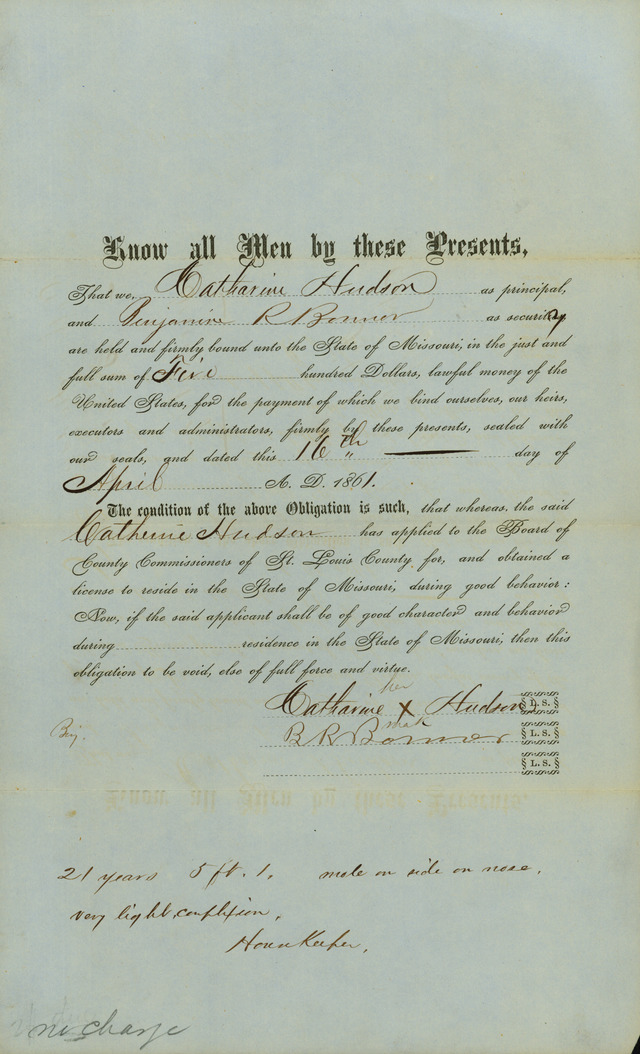 Know all Men by these Presents,
That we, Catharine Hudson as principal,
and Benjamine R Bonner as security
are held and firmly bound unto the State of Missouri, in the just and
full sum of Five hundred Dollars, lawful money of the
United States, for the payment of which we bind ourselves, our heirs,
executors and administrators, firmly by these presents, sealed with
our seals, and dated this 16th day of
April A. D. 1861.
The condition of the above Obligation is such, that whereas, the said
Catherine Hudson has applied to the Board of
County Commissioners of St. Louis County for, and obtained a
license to reside in the State of Missouri, during good behavior:
Now, if the said applicant shall be of good character and behavior
during residence in the State of Missouri, then this
obligation to be void, else of full force and virtue.
her
Catharine X Hudson L. S.
mark
Benj. B R Bonner L. S.
L. S.
21 years 5 ft. 1. mole on side on nose,
very light complexion,
House Keeper,
no charge